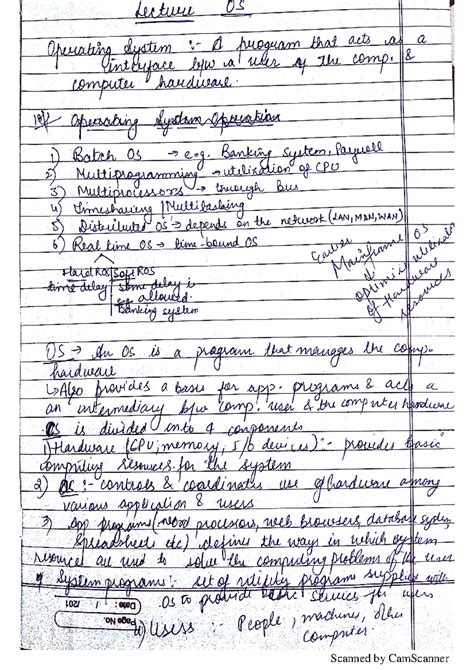 Lecture OS
Operating System :- A program that acts as a
interface b/w a user of the comp. &
computer hardware.
Operating System Operation
1) Batch OS → e.g. Banking System, Payroll
2) Multiprogramming → utilization of CPU
3) Multiprocessors → through Bus
4) Timesharing | Multitasking
5) Distributed OS → depends on the network (LAN, MAN, WAN)
6) Real time OS → time-bound OS
Hard ROS Soft ROS
time delay some delay is
allowed.
Banking system
Earlier
Mainframe OS
optimize utilization
of Hardware
resources
OS → An OS is a program that manages the comp.
hardware
↳ Also provides a basis for app. programs & acts as
an intermediary b/w comp. user & the computer hardware
OS is divided into 4 components
1) Hardware (CPU, memory, I/o devices) :- provides basic
computing resources for the system
2) OS :- controls & coordinates use of hardware among
various application & users
3) App programs (word processors, web browsers, database system
Spreadsheet etc) defines the ways in which system
resources are used to solve the computing problems of the user
System programs :- set of utility programs supplied with
OS to provide basic services for users
4) Users :- People, machines, other
computer.
Page No.
Date : / /201
Scanned by CamScanner